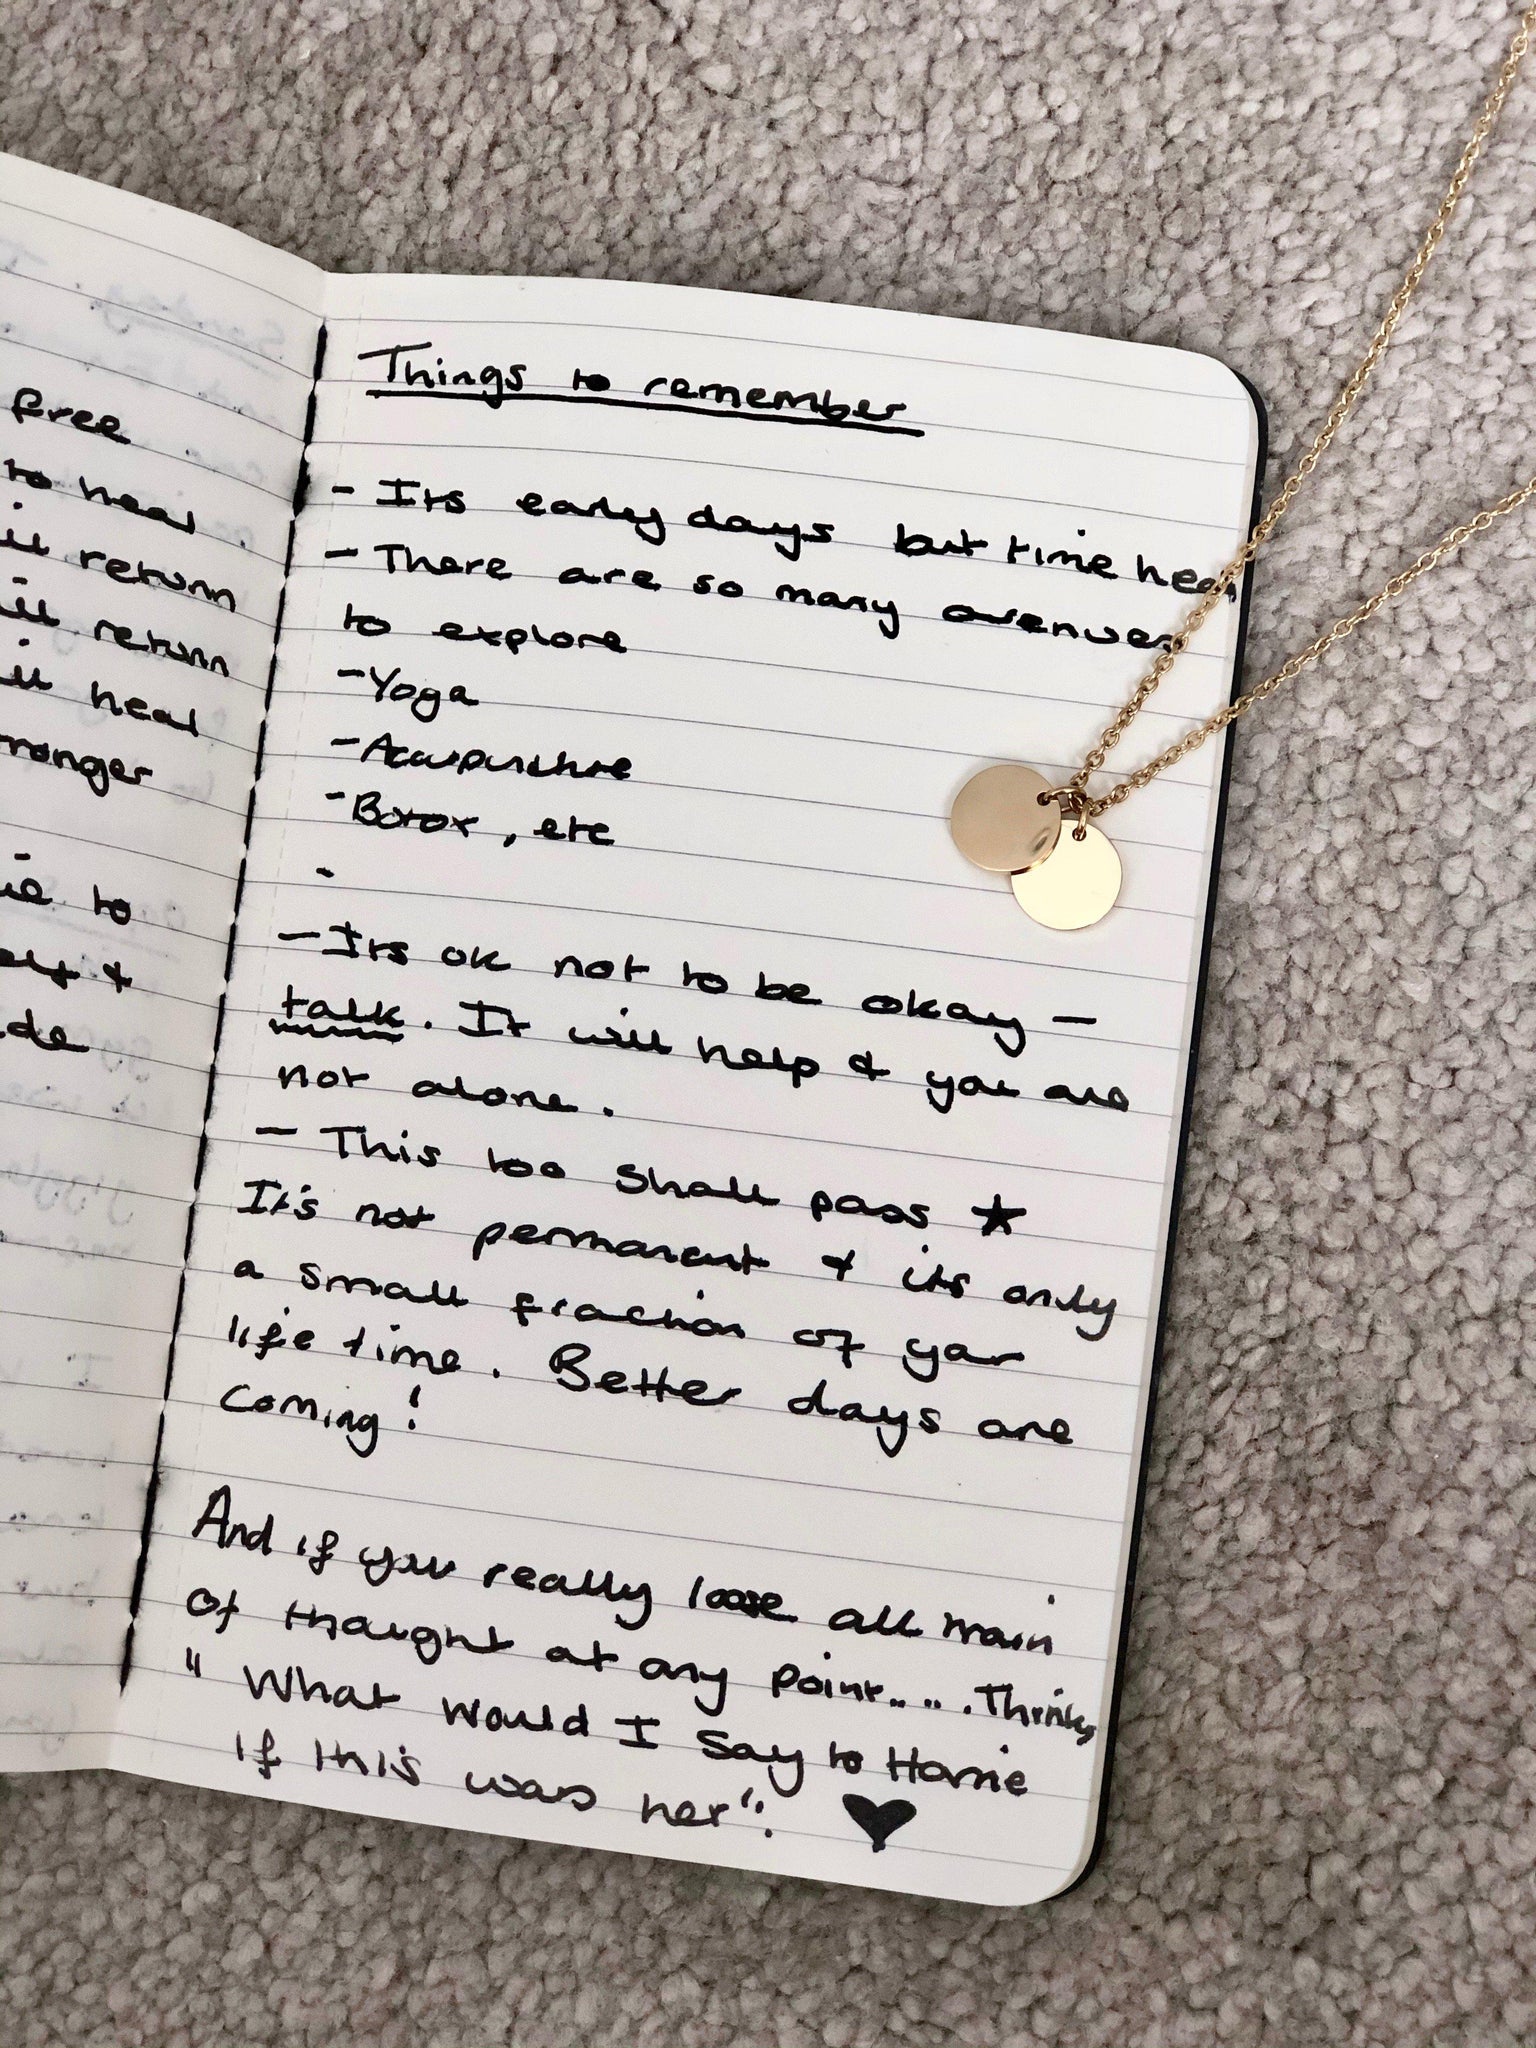 free
to heal
return
return
heal
to
Things to remember
- Its early days but time
- There are so many avenues
to explore
- Yoga
- Acupuncture
- Botox, etc
-
- Its ok not to be okay -
talk. It will help & you are
not alone.
- This too shall pass ★
It's not permanent & its only
a small fraction of your
life time. Better days are
coming!
And if you really loose all train
of thought at any point..... Think,
" What would I say to Harrie
if this was her". ♥